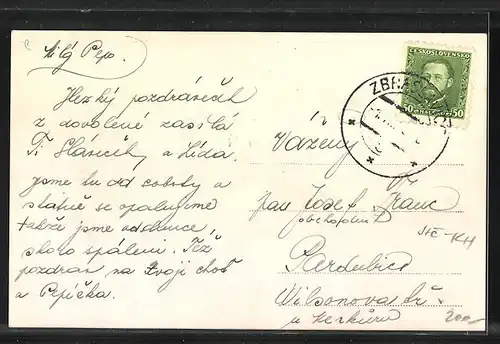 Milý Pepo.
Hezký pozdráveček
z dovolené zasílá
Ti Slávečk a Lída.
jsme tu od soboty a
statně se opalujeme
takže jsme od slunce
skoro spáleni. Též
pozdrav na Tvoji choť
a Pepíčka.
ČESKOSLOVENSKO
50 50
ZBRASL
Vážený
Pan Josef Franc
obchodník
Stč-KH
Pardubice
Wilsonova tř.
u Merkuru
200,-